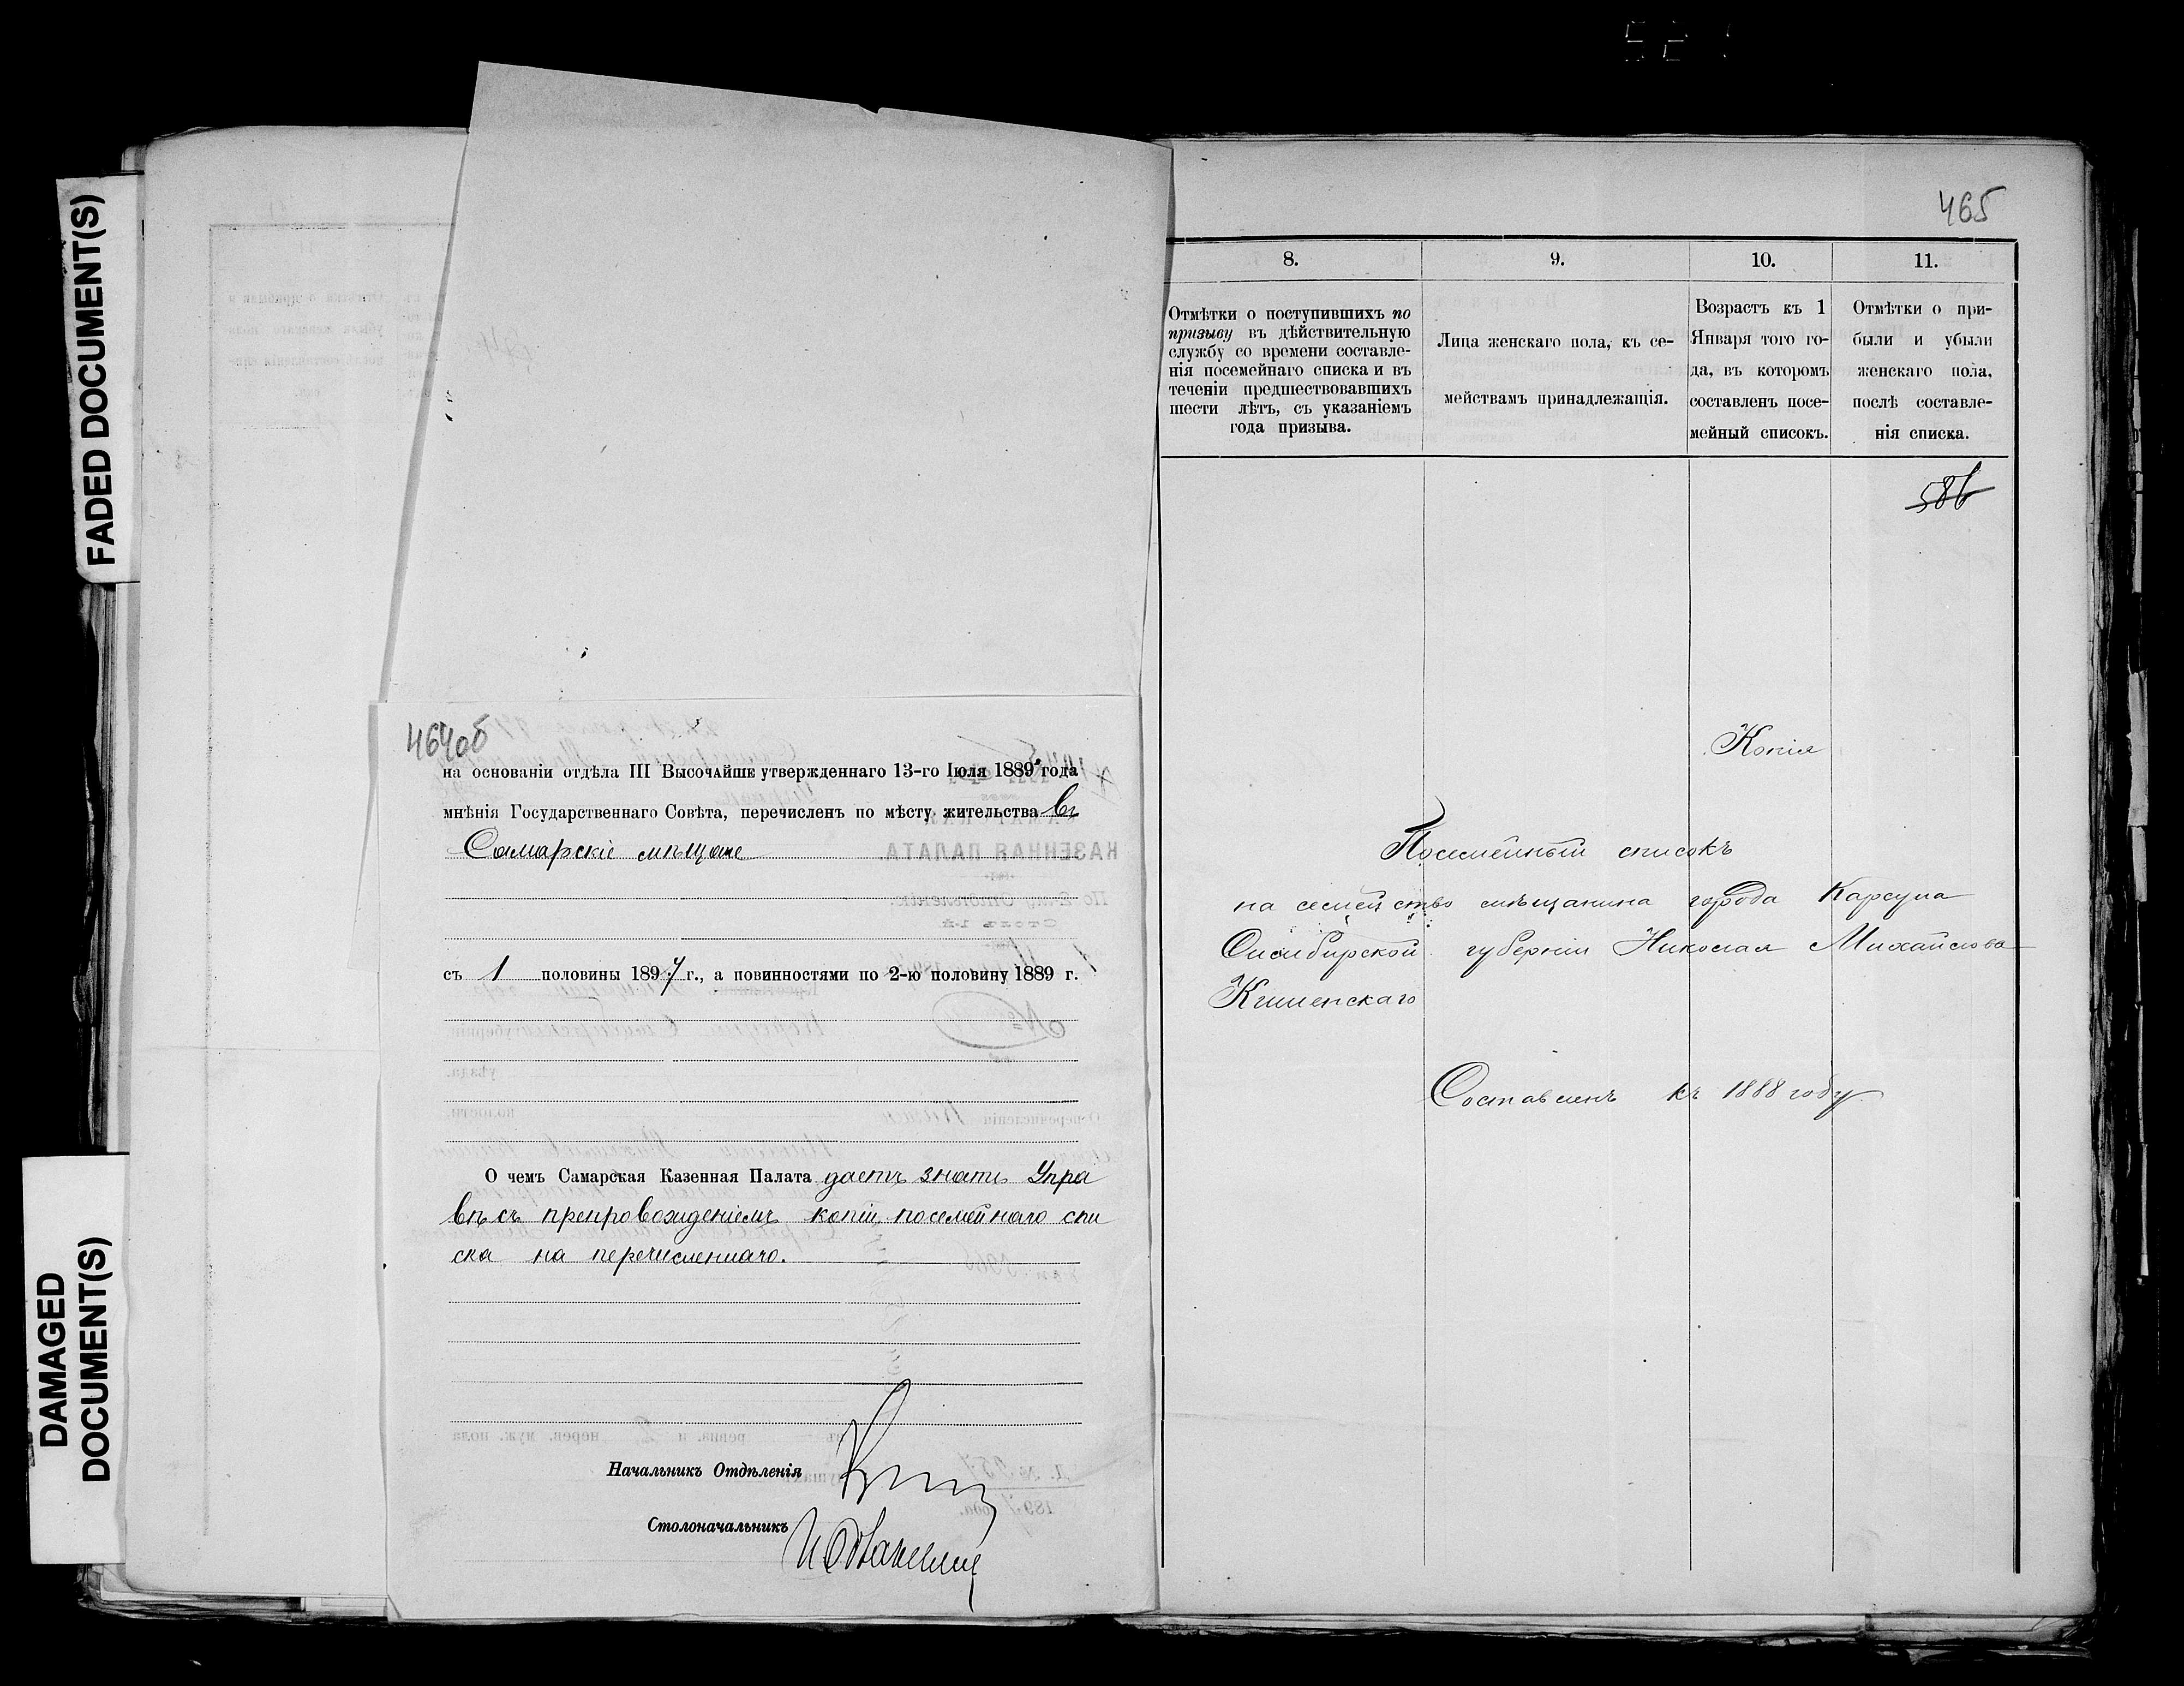 FADED DOCUMENT(S)
DAMAGED
DOCUMENT(S)
464об
на основаніи отдѣла III Высочайше утвержденнаго 13-го Іюля 1889 года
мнѣнія Государственнаго Совѣта, перечисленъ по мѣсту жительства въ
Самарскіе мѣщане
съ 1 половины 1897 г., а повинностями по 2-ю половину 1889 г.
О чемъ Самарская Казенная Палата даетъ знать Упра
вѣ съ препровожденіемъ копіи посемейнаго спи
ска на перечисленнаго.
Начальникъ Отдѣленія
Столоначальникъ
465
8.
9.
10.
11.
Отмѣтки о поступившихъ по
призыву въ дѣйствительную
службу со времени составле-
нія посемейнаго списка и въ
теченіи предшествовавшихъ
шести лѣтъ, съ указаніемъ
года призыва.
Лица женскаго пола, къ се-
мействамъ принадлежащія.
Возрастъ къ 1
Января того го-
да, въ которомъ
составленъ посе-
мейный списокъ.
Отмѣтки о при-
были и убыли
женскаго пола,
послѣ составле-
нія списка.
586
Копія
Посемейный списокъ
на семейство мѣщанина города Карсуна
Симбирской губерніи Николая Михайлова
Составленъ къ 1888 году